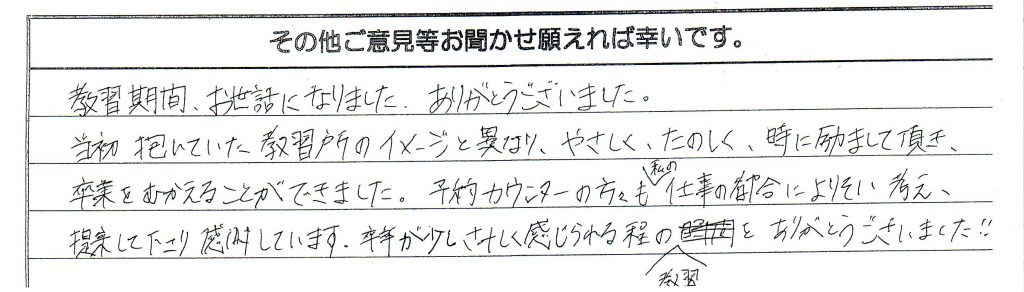 その他ご意見等お聞かせ願えれば幸いです。
教習期間、お世話になりました。ありがとうございました。
当初抱いていた教習所のイメージと異なり、やさしく、たのしく、時に励まして頂き、
卒業をむかえることができました。予約カウンターの方々も私の仕事の都合によりそい考え、
提案して下さり感謝しています。卒業が少しさみしく感じられる程の教習をありがとうございました!!